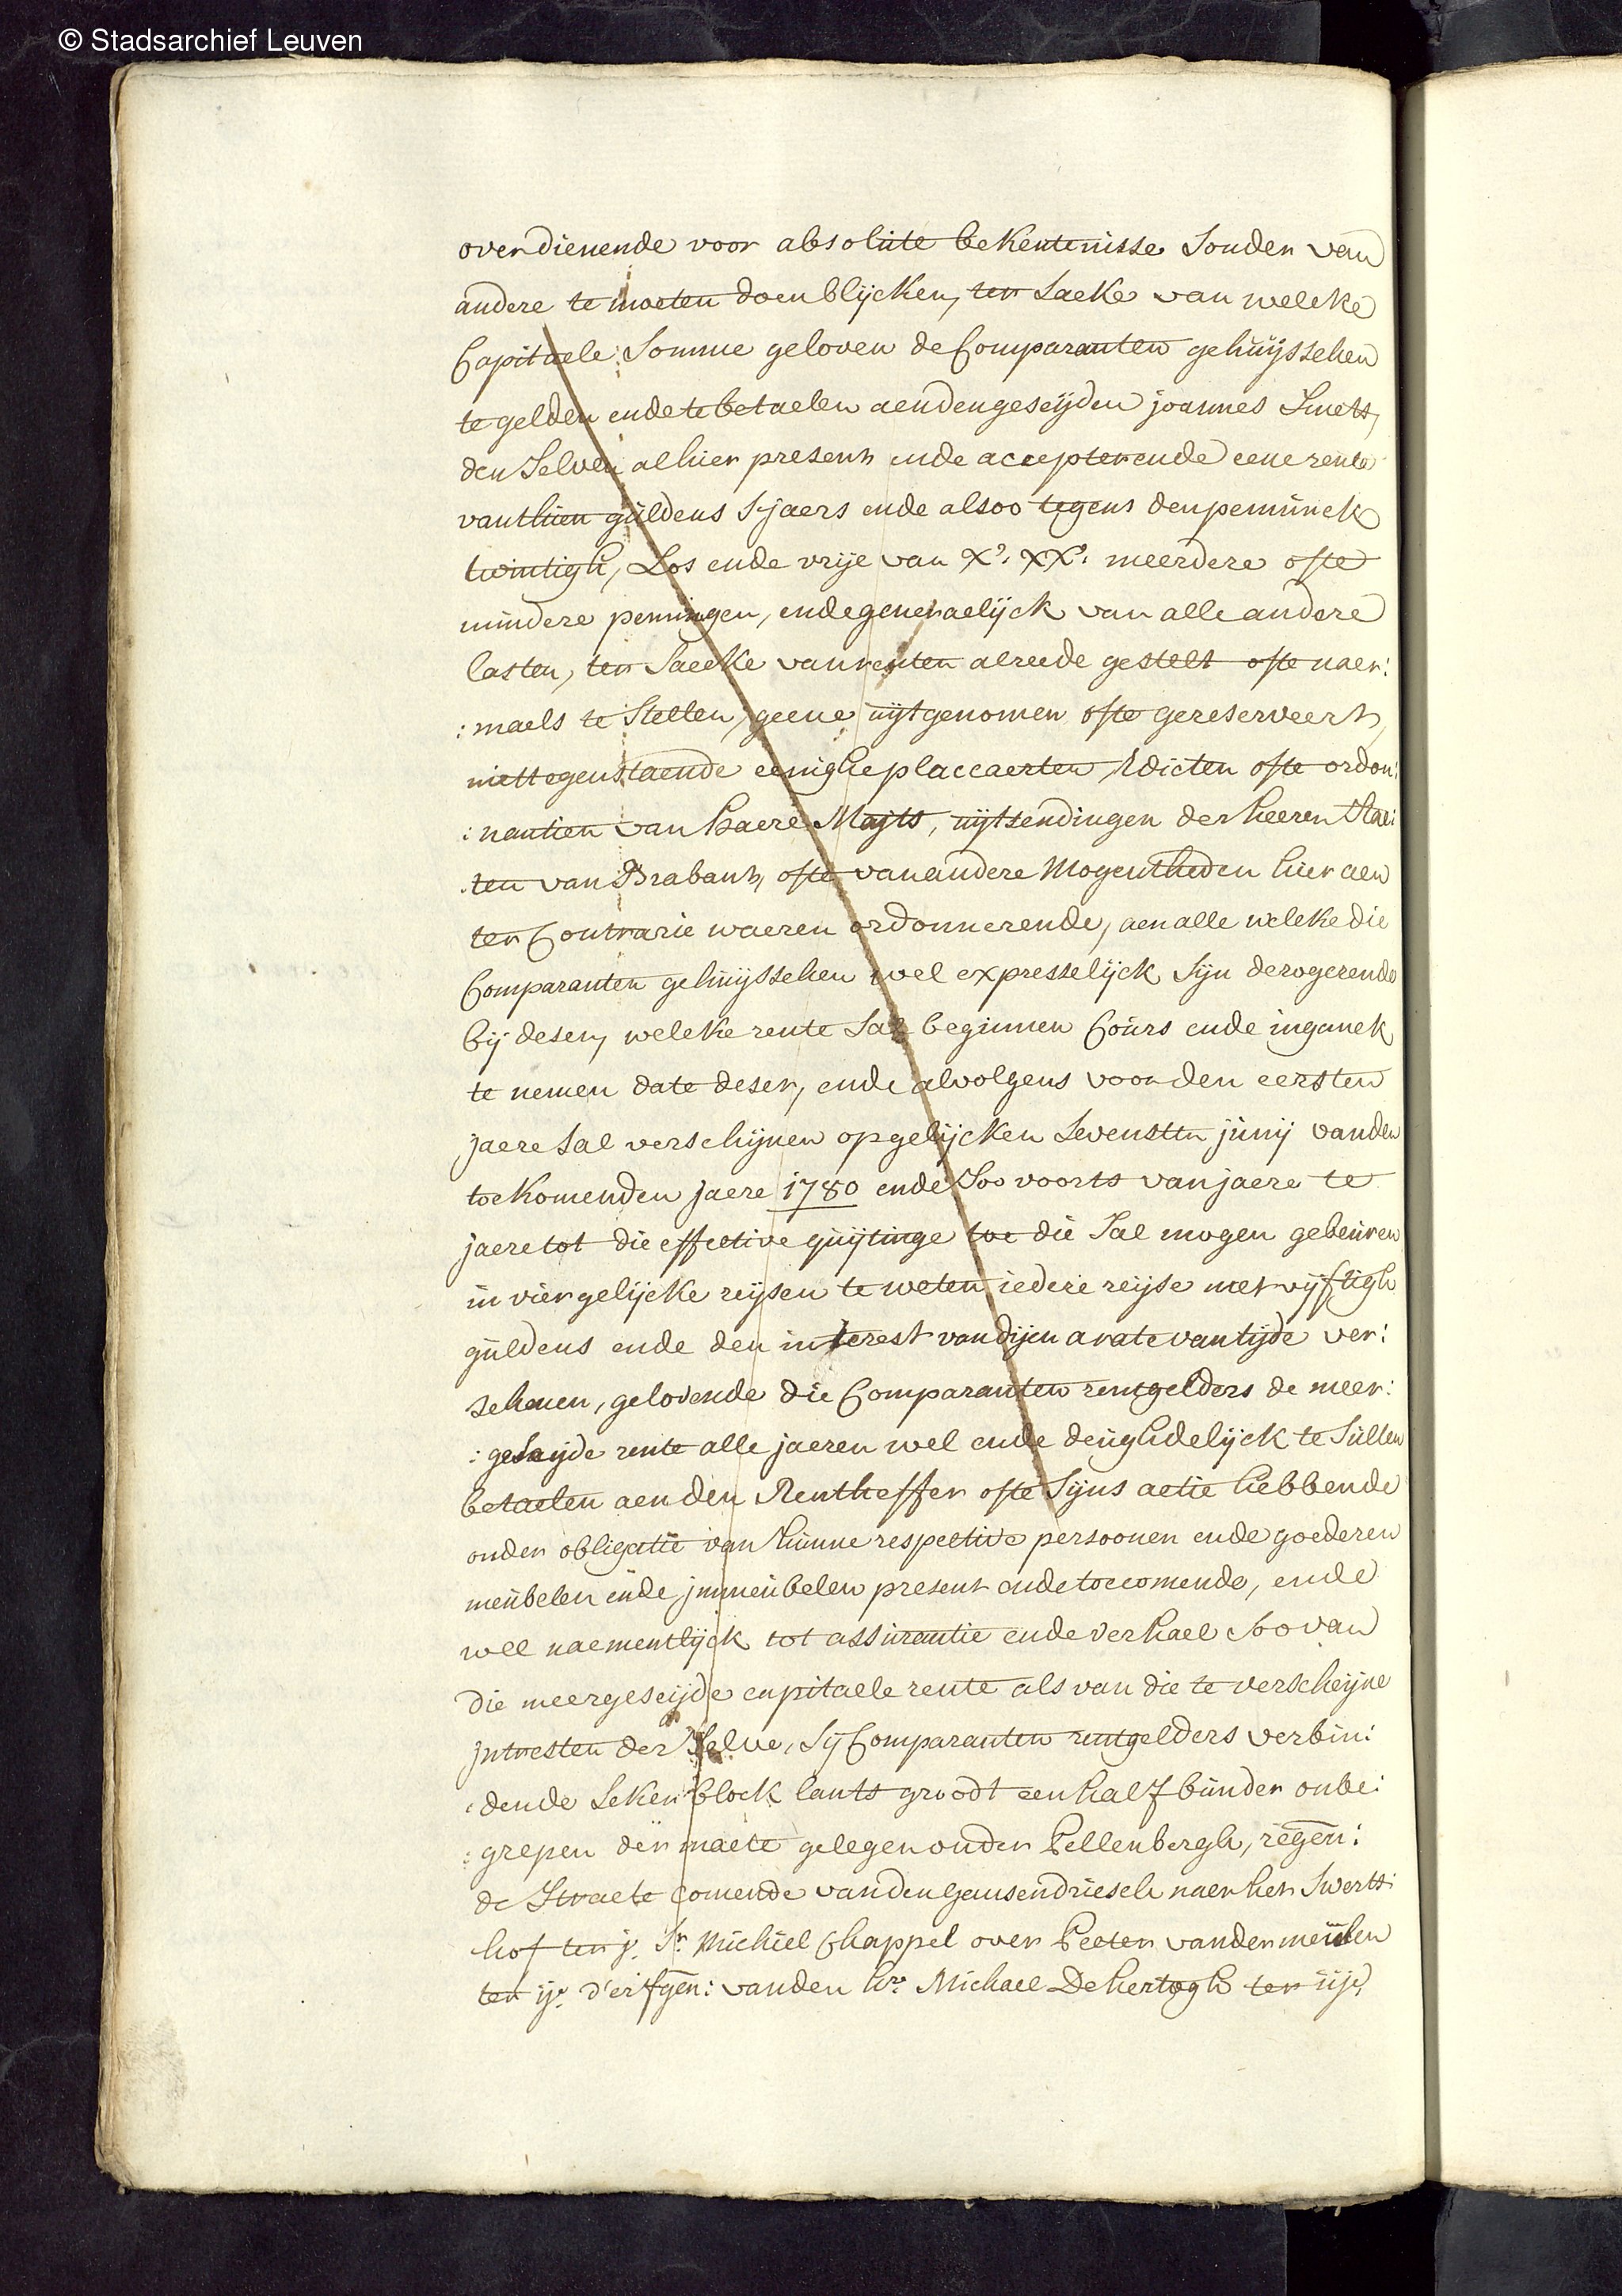 © Stadsarchief Leuven
over dienende voor absolute bekentenisse sonder van
andere te moeten doen blijcken, ter saeke van welcke
Capitaele somme geloven de Comparanten gehuijsschen
te gelden ende te betaelen aenden geseijden joannes Smets,
den selven alhier present ende accepterende eene rente
van thien guldens s'jaers ende alsoo tegens den penninck
twintigh, Los ende vrije van Xe: XXe: meerdere ofte
mindere penningen, ende generaelijck van alle andere
lasten, ter saecke van renten alreede gestelt ofte naer:
:maels te stellen, geene uijtgenomen ofte gereserveert,
niettegenstaende eenighe placcaerten, Edicten ofte ordon:
:nantien van haere Majts, uijtsendingen der heeren stae:
:ten van Brabant, ofte van andere Mogentheden hier aen
ter Contrarie waeren ordonnerende, aen alle welcke die
Comparanten gehuijsschen wel expresselijck sijn derogerende
bij desen, welcke rente sal beginnen Cours ende inganck
te nemen date deser, ende alvolgens voor den eersten
jaere sal verschijnen op gelijcken sevensten junij vanden
toekomenden jaere 1780 ende soo voorts van jaere te
jaere tot die effective quijtinge toe die sal mogen gebeuren
in vier gelijcke reijsen te weten iedere reijse met vijftigh
guldens ende den interest van dijen a rate van tijde ver:
schenen, gelovende die Comparanten rentgelders de meer:
:geseijde rente alle jaeren wel ende deughdelijck te sullen
betaelen aen den Rentheffer ofte sijns actie hebbende
onder obligatie van hunne respective persoonen ende goederen
meubelen ende jmmeubelen present ende toecomende, ende
wel naementlijck tot assurantie ende verhael soo van
die meergeseijde capitaele rente als van die te verscheijne
jntresten der selve, sij Comparanten rentgelders verbin:
:dende seker block lants groodt een half bunder onbe:
:grepen der maete gelegen onder Pellenbergh, regen:
de straete comende vanden gansendriesch naer het swerts:
hof ter j. Sr. Michiel Chappel over Peeter vandermeulen
ter ije. d'erfgen: vanden hre. Michael De hertogh ter iije.